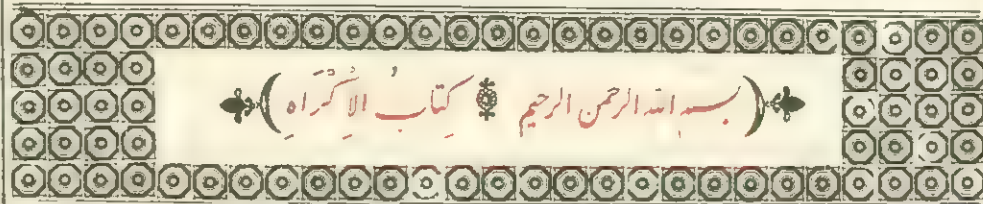 (بسم الله الرحمن الرحيم ۞ كِتَابُ الْإِكْرَاهِ)